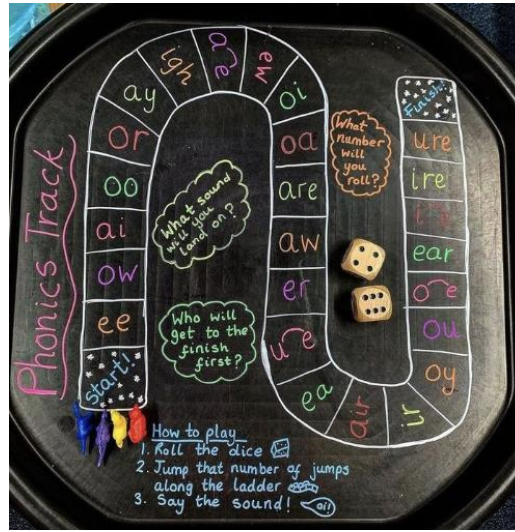 Phonics Track
Start!
ee
ow
ai
oo
or
ay
igh
a_e
ew
oi
oa
are
aw
er
u_e
ea
air
ir
oy
ou
o_e
ear
i_e
ire
ure
Finish!
What sound
will you
land on?
Who will
get to the
finish
first?
What
number
will
you
roll?
How to play
1. Roll the dice
2. Jump that number of jumps
along the ladder
3. Say the sound!
oi!